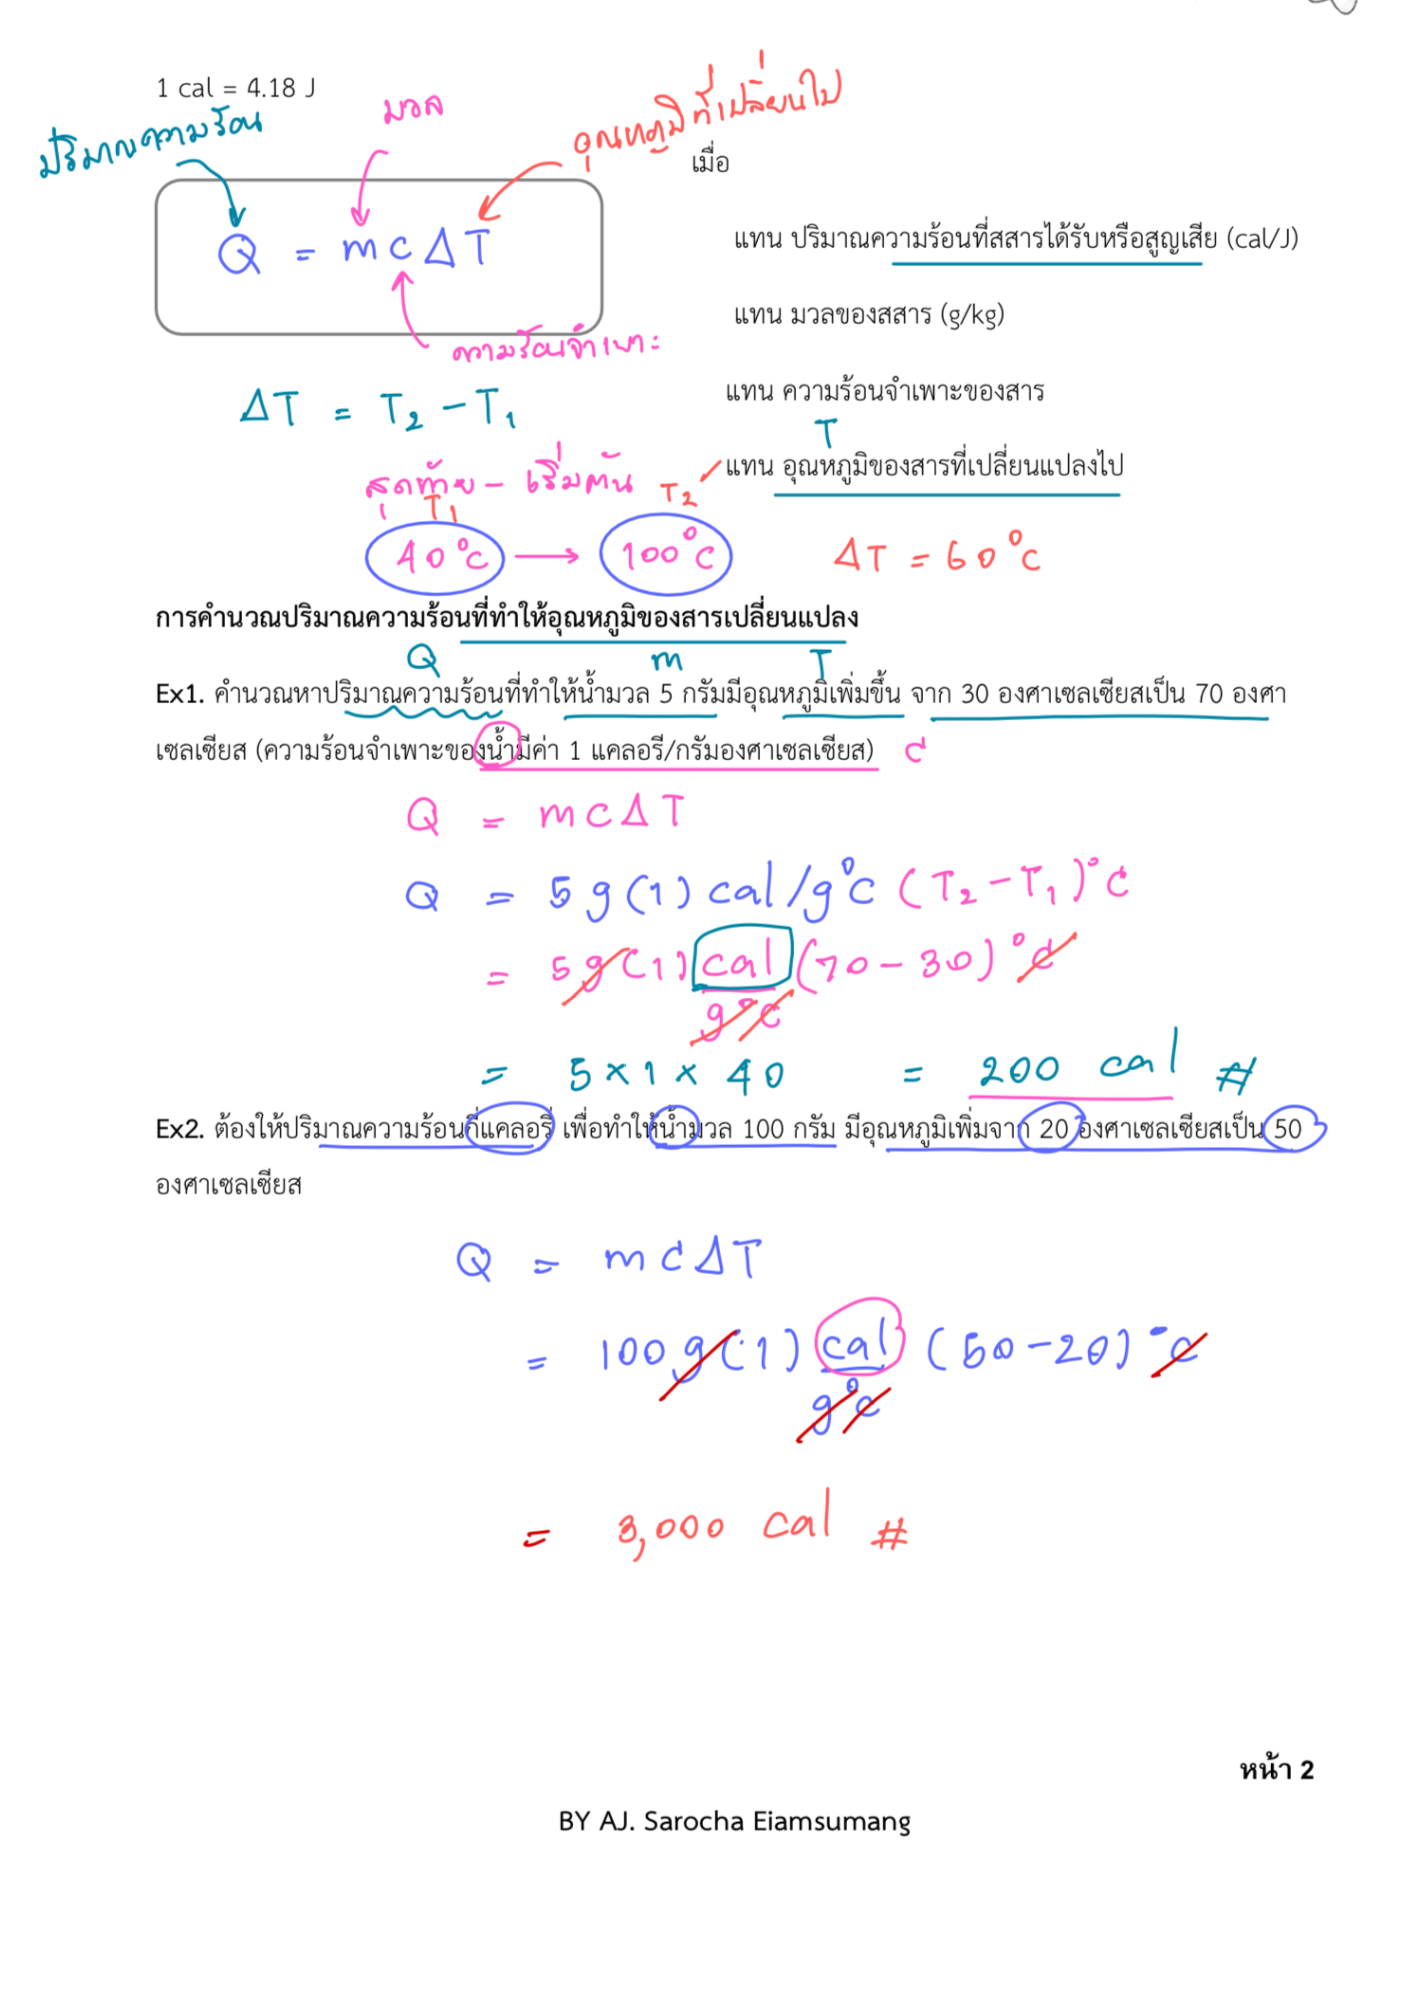 1 cal = 4.18 J
ปริมาณความร้อน
มวล
อุณหภูมิที่เปลี่ยนไป
เมื่อ
Q = mcΔT
แทน ปริมาณความร้อนที่สสารได้รับหรือสูญเสีย (cal/J)
แทน มวลของสสาร (g/kg)
ความร้อนจำเพาะ
แทน ความร้อนจำเพาะของสาร
ΔT = T₂ - T₁
T
แทน อุณหภูมิของสารที่เปลี่ยนแปลงไป
สุดท้าย - เริ่มต้น
T₁ T₂
40°C → 100°C ΔT = 60°C
การคำนวณปริมาณความร้อนที่ทำให้อุณหภูมิของสารเปลี่ยนแปลง
Q m T
Ex1. คำนวณหาปริมาณความร้อนที่ทำให้น้ำมวล 5 กรัมมีอุณหภูมิเพิ่มขึ้น จาก 30 องศาเซลเซียสเป็น 70 องศา
เซลเซียส (ความร้อนจำเพาะของน้ำมีค่า 1 แคลอรี/กรัมองศาเซลเซียส) c
Q = mcΔT
Q = 5g(1) cal/g°C (T₂-T₁)°C
= 5g(1) cal (70-30)°C
g°C
= 5×1×40 = 200 cal #
Ex2. ต้องให้ปริมาณความร้อนกี่แคลอรี่ เพื่อทำให้น้ำมวล 100 กรัม มีอุณหภูมิเพิ่มจาก 20 องศาเซลเซียสเป็น 50
องศาเซลเซียส
Q = mcΔT
= 100g(1) cal (50-20)°C
g°C
= 3,000 cal #
หน้า 2
BY AJ. Sarocha Eiamsumang